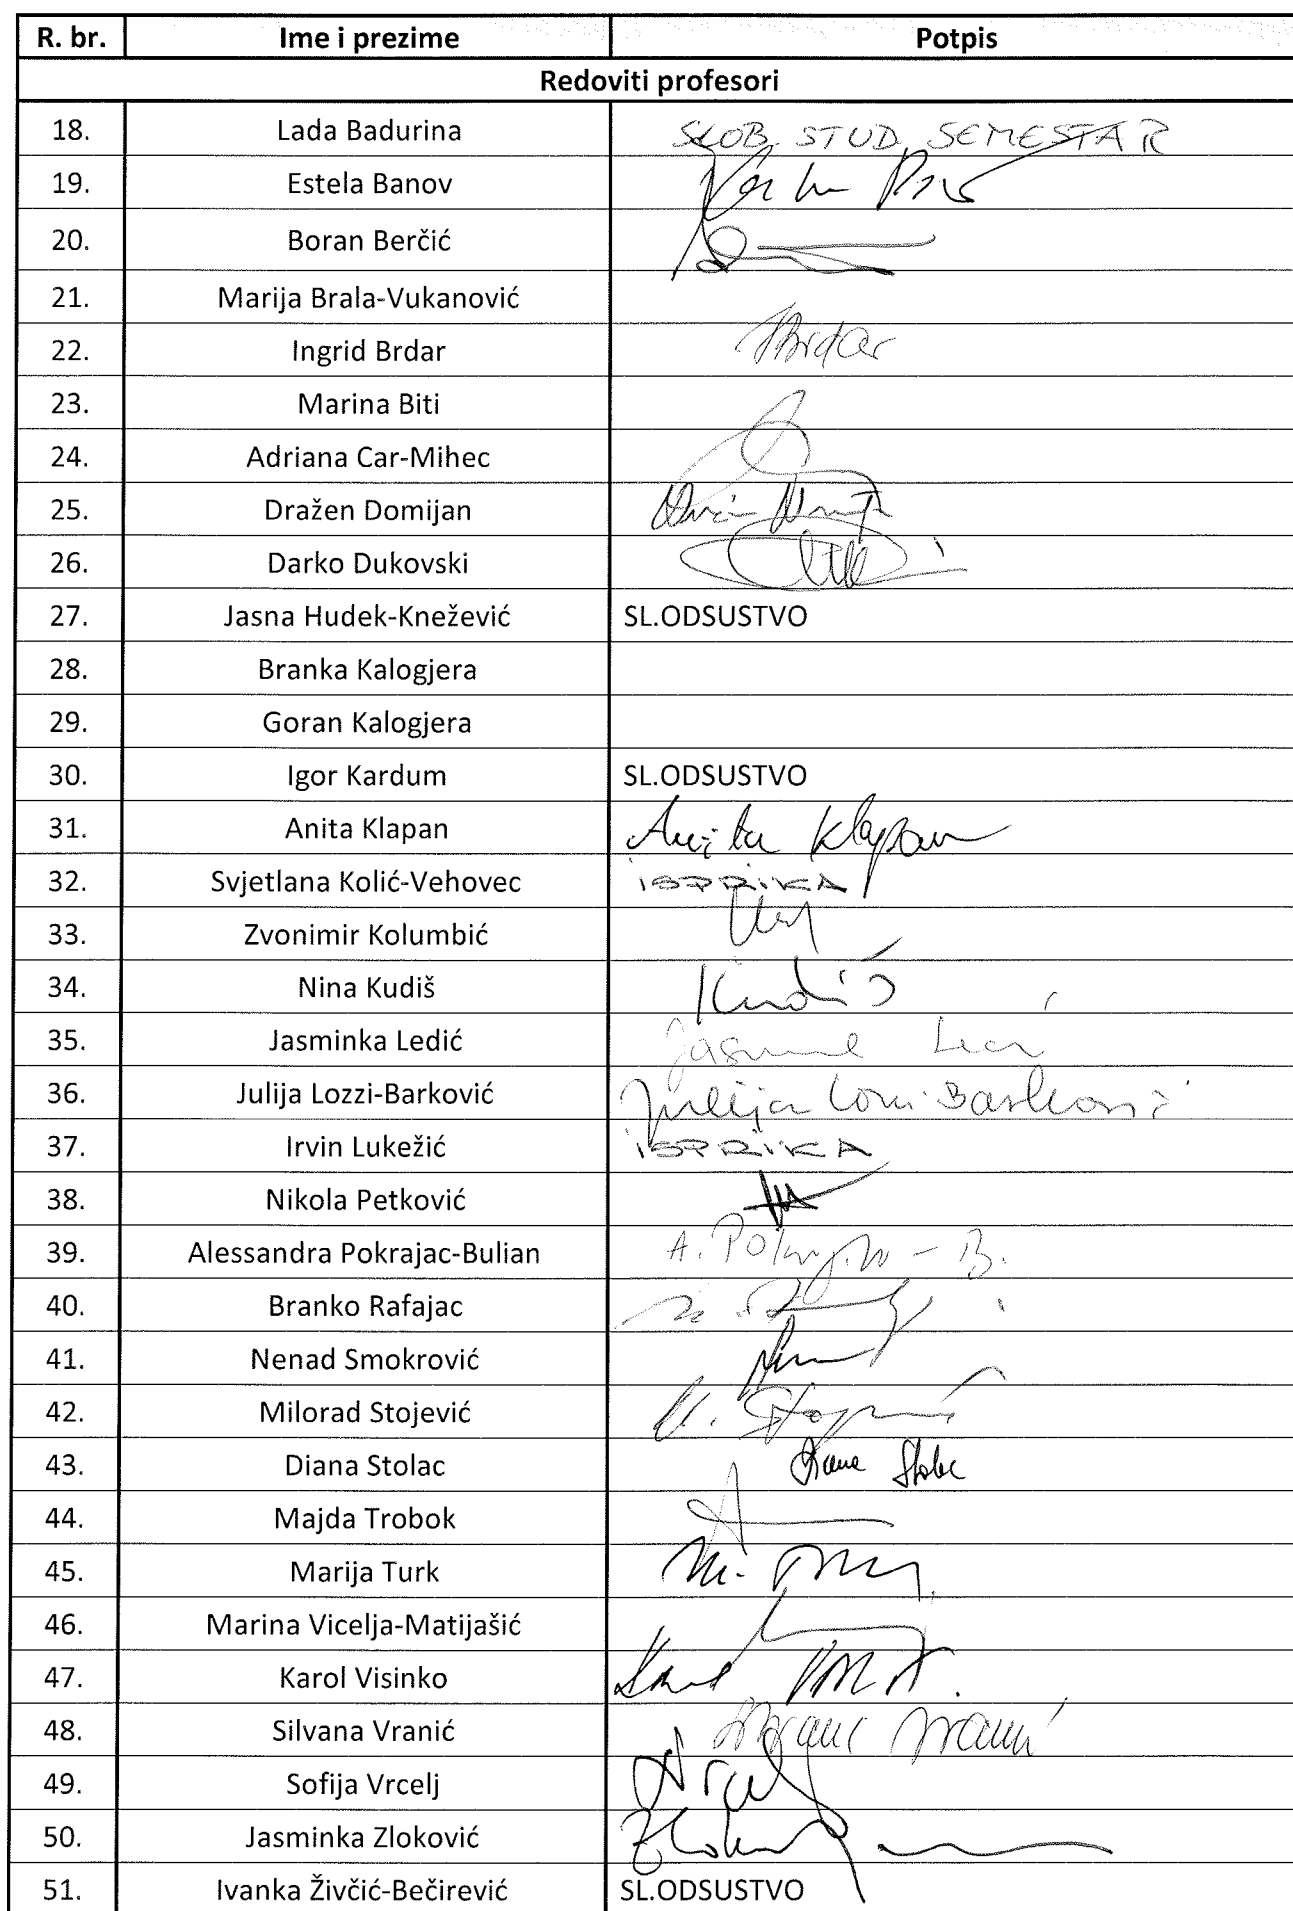 R. br. Ime i prezime Potpis
Redoviti profesori
18. Lada Badurina SLOB. STUD. SEMESTAR
19. Estela Banov
20. Boran Berčić
21. Marija Brala-Vukanović
22. Ingrid Brdar IBrdar
23. Marina Biti
24. Adriana Car-Mihec
25. Dražen Domijan
26. Darko Dukovski
27. Jasna Hudek-Knežević SL.ODSUSTVO
28. Branka Kalogjera
29. Goran Kalogjera
30. Igor Kardum SL.ODSUSTVO
31. Anita Klapan Anita Klapan
32. Svjetlana Kolić-Vehovec ISPRIKA
33. Zvonimir Kolumbić
34. Nina Kudiš Kudiš
35. Jasminka Ledić
36. Julija Lozzi-Barković Julija Lozzi-Barković
37. Irvin Lukežić ISPRIKA
38. Nikola Petković
39. Alessandra Pokrajac-Bulian
40. Branko Rafajac
41. Nenad Smokrović
42. Milorad Stojević
43. Diana Stolac Diana Stolac
44. Majda Trobok
45. Marija Turk M. Turk
46. Marina Vicelja-Matijašić
47. Karol Visinko
48. Silvana Vranić Silvana Vranić
49. Sofija Vrcelj
50. Jasminka Zloković
51. Ivanka Živčić-Bečirević SL.ODSUSTVO